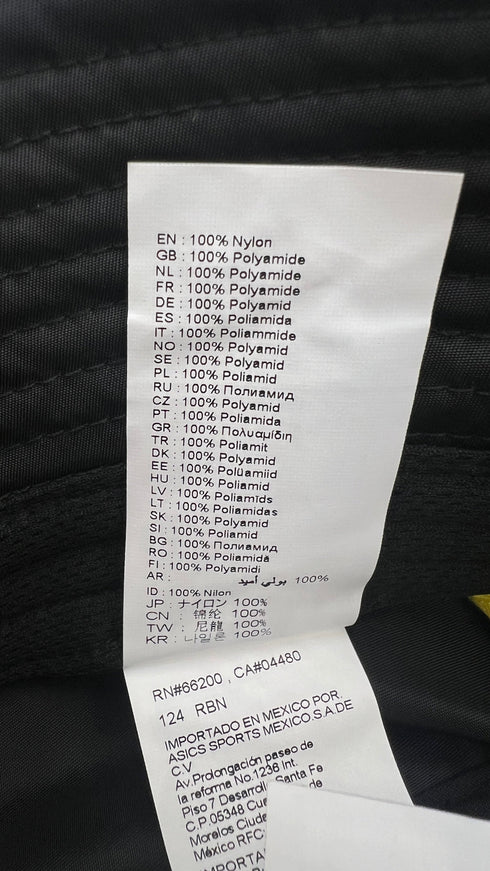 EN : 100% Nylon
GB : 100% Polyamide
NL : 100% Polyamide
FR : 100% Polyamide
DE : 100% Polyamid
ES : 100% Poliamida
IT : 100% Poliammide
NO : 100% Polyamid
SE : 100% Polyamid
PL : 100% Poliamid
RU : 100% Полиамид
CZ : 100% Polyamid
PT : 100% Poliamida
GR : 100% Πολυαμίδιη
TR : 100% Poliamit
DK : 100% Polyamid
EE : 100% Polüamiid
HU : 100% Poliamid
LV : 100% Poliamīds
LT : 100% Poliamidas
SK : 100% Polyamid
SI : 100% Poliamid
BG : 100% Полиамид
RO : 100% Poliamidă
FI : 100% Polyamidi
AR : بولي أميد 100%
ID : 100% Nilon
JP : ナイロン 100%
CN : 锦纶 100%
TW : 尼龍 100%
KR : 나일론 100%
RN#66200 , CA#04480
124 RBN
IMPORTADO EN MEXICO POR.
ASICS SPORTS MEXICO.S.A.DE
C.V
Av.Prolongación paseo de
la reforma No.1236 Int.
Piso 7 Desarroll Santa Fe
C.P.05348 Cue de
Morelos Ciuda
México RFC:
IMPORTA